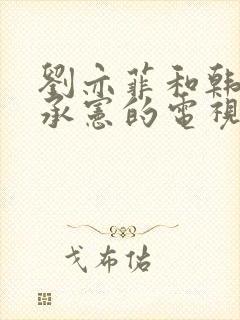 劉亦菲和韩
承憲的電視
戈布估